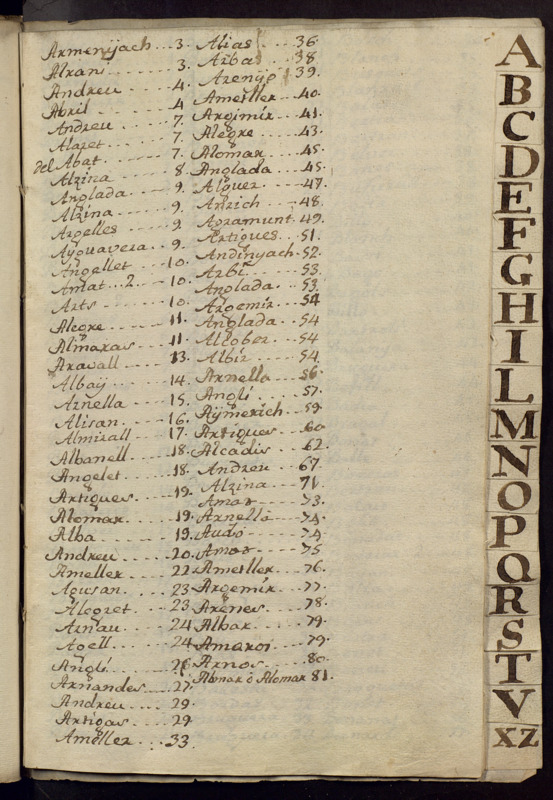 Armenyach 3.
Alrani 3.
Andreu 4.
Abril 4
Andreu 7.
Alaret 7.
del Abat 7.
Alzina 8.
Anglada 9.
Alzina 9.
Argelles 9
Ayguavera 9.
Angellet 10.
Amat 2 10.
Arts 10.
Alegre 11.
Almaras 11.
Aravall 13.
Albaÿ 14.
Arnella 15.
Alisan 16.
Almirall 17.
Albanell 18.
Angelet 18.
Artigues 19.
Alomar 19.
Alba 19.
Andreu 20.
Ameller 22
Agusan 23
Alegret 23
Arnau 24
Agell 24
Anglí
Arnandes 27.
Andreu 29.
Artigas 29.
Ameller 33.
Alias 36.
Arbas 38
Arenÿs 39.
Ametller 40.
Argimir 41.
Alegre 43.
Alomar 45.
Anglada 45.
Alguer 47.
Anrich 48.
Agramunt 49.
Artigues 51.
Andinyach 52.
Arbi 53.
Anglada 53.
Argemir 54
Anglada 54
Alcober 54
Albir 54
Arnella 56
Angli 57.
Aymerich 59
Artigues 60
Alcadis 62.
Andreu 67.
Alzina 71
Amar 73.
Arnella 74.
Audó 74
Amor 75
Ametller 76.
Argemir 77
Arenes 78.
Albar 79.
Amaroi 79.
Arnos 80.
Abmar ó Alomar 81.
A
B
C
D
E
F
G
H
I
L
M
N
O
P
Q
R
S
T
V
XZ